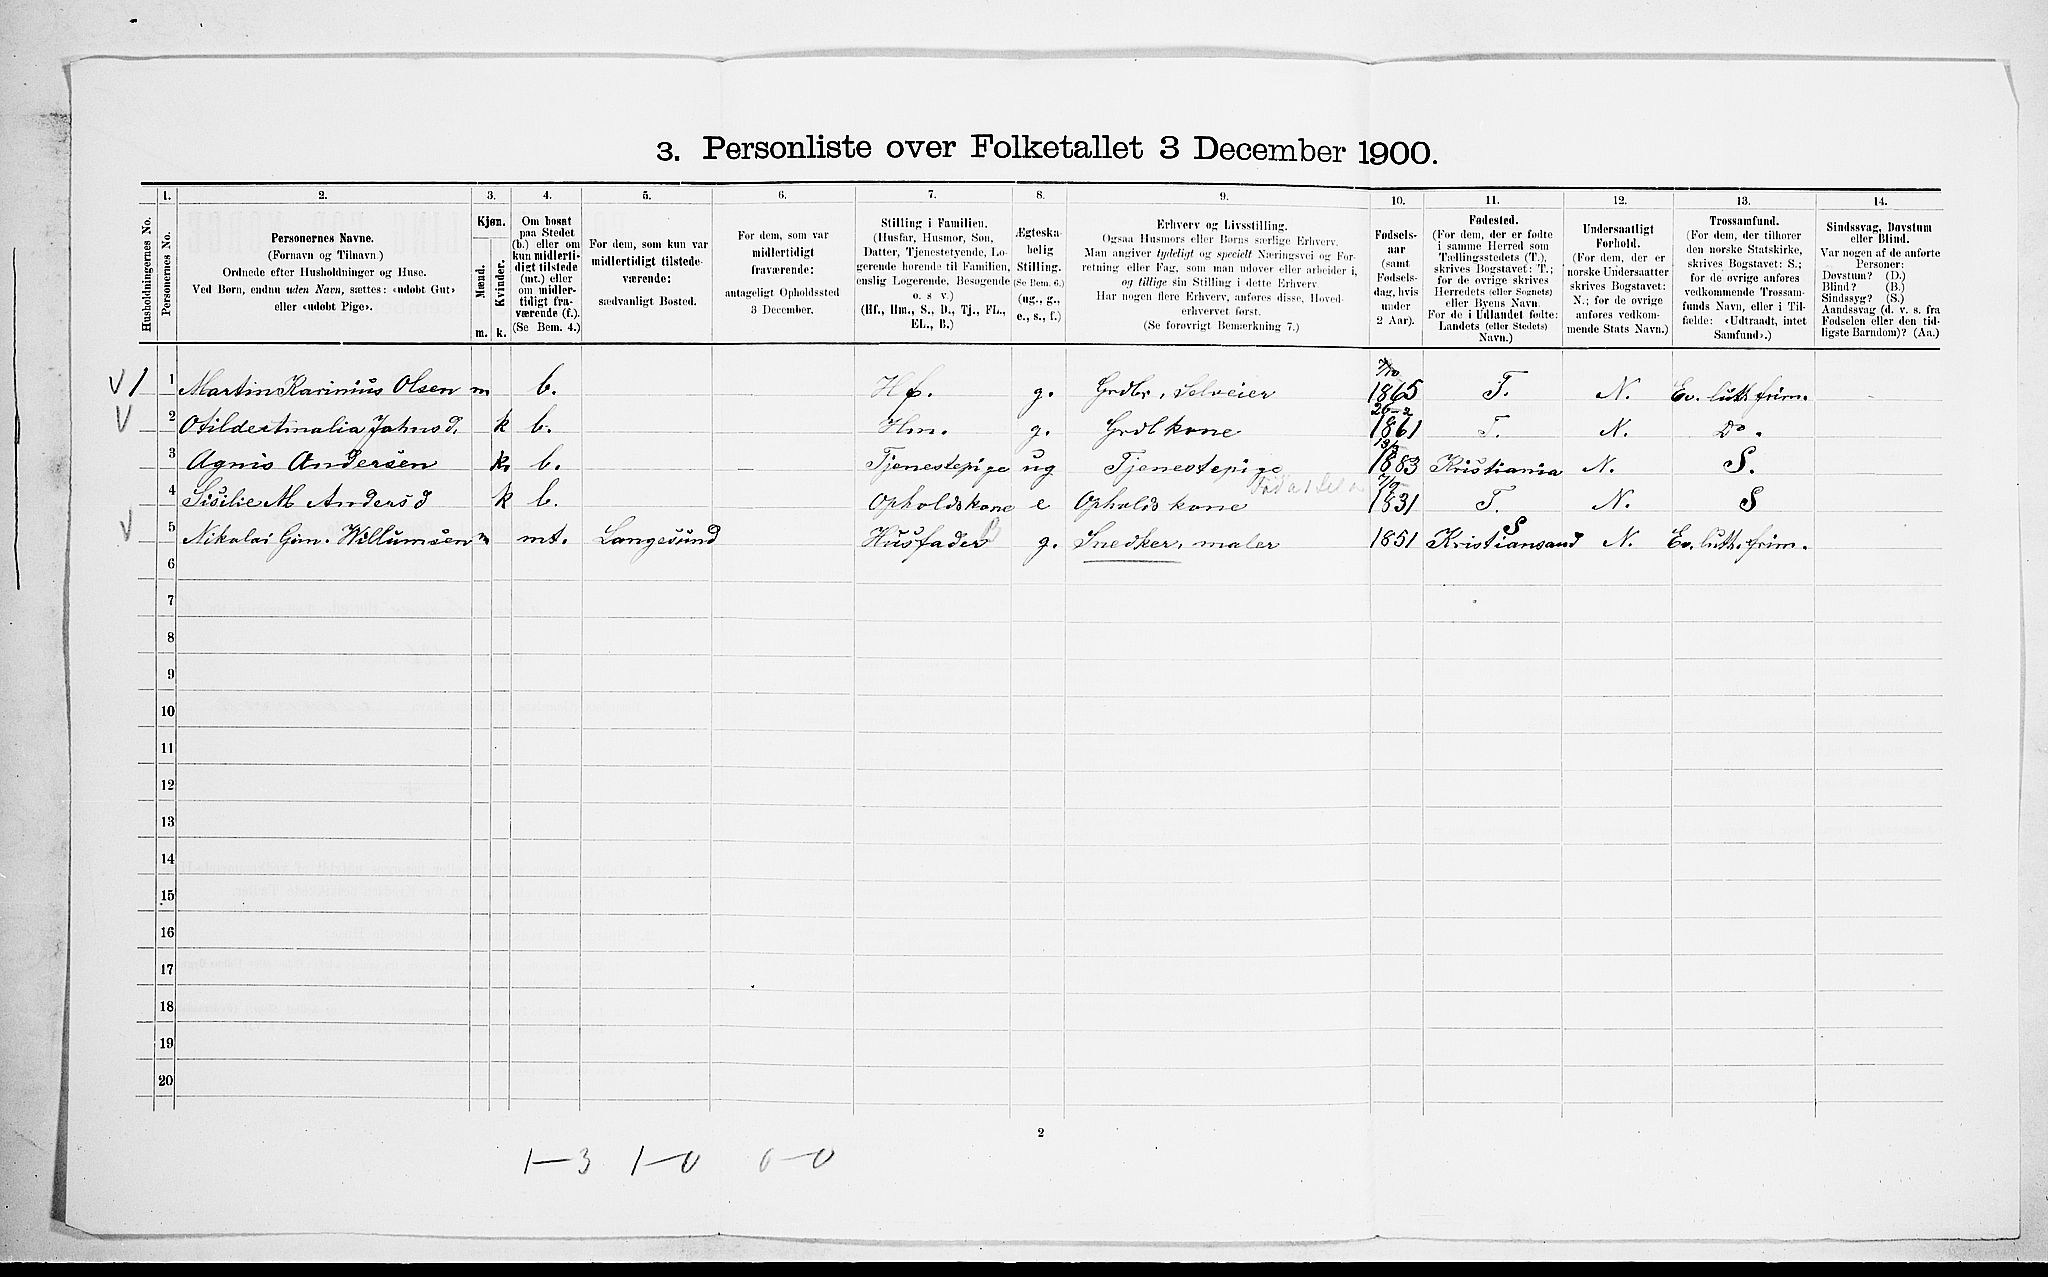 3. Personliste over Folketallet 3 December 1900.
1. 2. 3. 4. 5. 6. 7. 8. 9. 10. 11. 12. 13. 14.
Husholdningernes No.
Personernes No.
Personernes Navne.
(Fornavn og Tilnavn.)
Ordnede efter Husholdninger og Huse.
Ved Børn, endnu uden Navn, sættes: «udøbt Gut»
eller «udøbt Pige».
Kjøn.
Mænd.
Kvinder.
m. k.
Om bosat
paa Stedet
(b.) eller om
kun midlerti-
digt tilstede
(mt.) eller
om midler-
tidigt fra-
værende (f.).
(Se Bem. 4.)
For dem, som kun var
midlertidigt tilstede-
værende:
sædvanligt Bosted.
For dem, som var
midlertidigt
fraværende:
antageligt Opholdssted
3 December.
Stilling i Familien.
(Husfar, Husmor, Søn,
Datter, Tjenestetyende, Lo-
gerende hørende til Familien,
enslig Logerende, Besøgende
o. s v.)
(Hf., Hm., S., D., Tj., FL.,
EL., B.)
Ægteska-
belig
Stilling.
(Se Bem. 6.)
(ug., g.,
e., s., f.)
Erhverv og Livsstilling.
Ogsaa Husmors eller Børns særlige Erhverv.
Man angiver tydeligt og specielt Næringsvei og For-
retning eller Fag, som man udøver eller arbeider i,
og tillige sin Stilling i dette Erhverv
Har nogen flere Erhverv, anføres disse, Hoved-
erhvervet først.
(Se forøvrigt Bemærkning 7.)
Fødsels-
aar
(samt
Fødsels-
dag, hvis
under
2 Aar).
Fødested.
(For dem, der er fødte
i samme Herred som
Tællingsstedets (T.),
skrives Bogstavet: T.;
for de øvrige skrives
Herredets (eller Sognets)
eller Byens Navn
For de i Udlandet fødte:
Landets (eller Stedets)
Navn.)
Undersaatligt
Forhold.
(For dem, der er
norske Undersaatter
skrives Bogstavet:
N.; for de øvrige
anføres vedkom-
mende Stats Navn.)
Trossamfund.
(For dem, der tilhører
den norske Statskirke,
skrives Bogstavet: S.;
for de øvrige anføres
vedkommende Trossam-
funds Navn, eller i Til-
fælde: «Udtraadt, intet
Samfund».)
Sindssvag, Døvstum
eller Blind.
Var nogen af de anførte
Personer:
Døvstum? (D.)
Blind? (B.)
Sindssyg? (S.)
Aandssvag (d. v. s. fra
Fødselen eller den tid-
ligste Barndom)? (Aa.)
1 1 Martin Karinius Olsen m b. Hf. g. Grdbr, Selveier 7/10 1865 T. N. Ev. luth frim.
2 k b. Hm. g. Grdb kone 26-2 1861 T. N. Do.
3 Agnis Andersen k b. Tjenestepige ug Tjenestepige 1883 Kristiania N. S.
4 Sisilie M Andersd k b. Opholdskone e Opholdskone 1831 T. N. S
5 Nikolai Willumsen m mt. Langesund Husfader g. Snedker, maler 1851 Kristiansand S N. Ev. luth. frim.
6
7
8
9
10
11
12
13
14
15
16
17
18
19
20
2
1-3 1-0 0-0